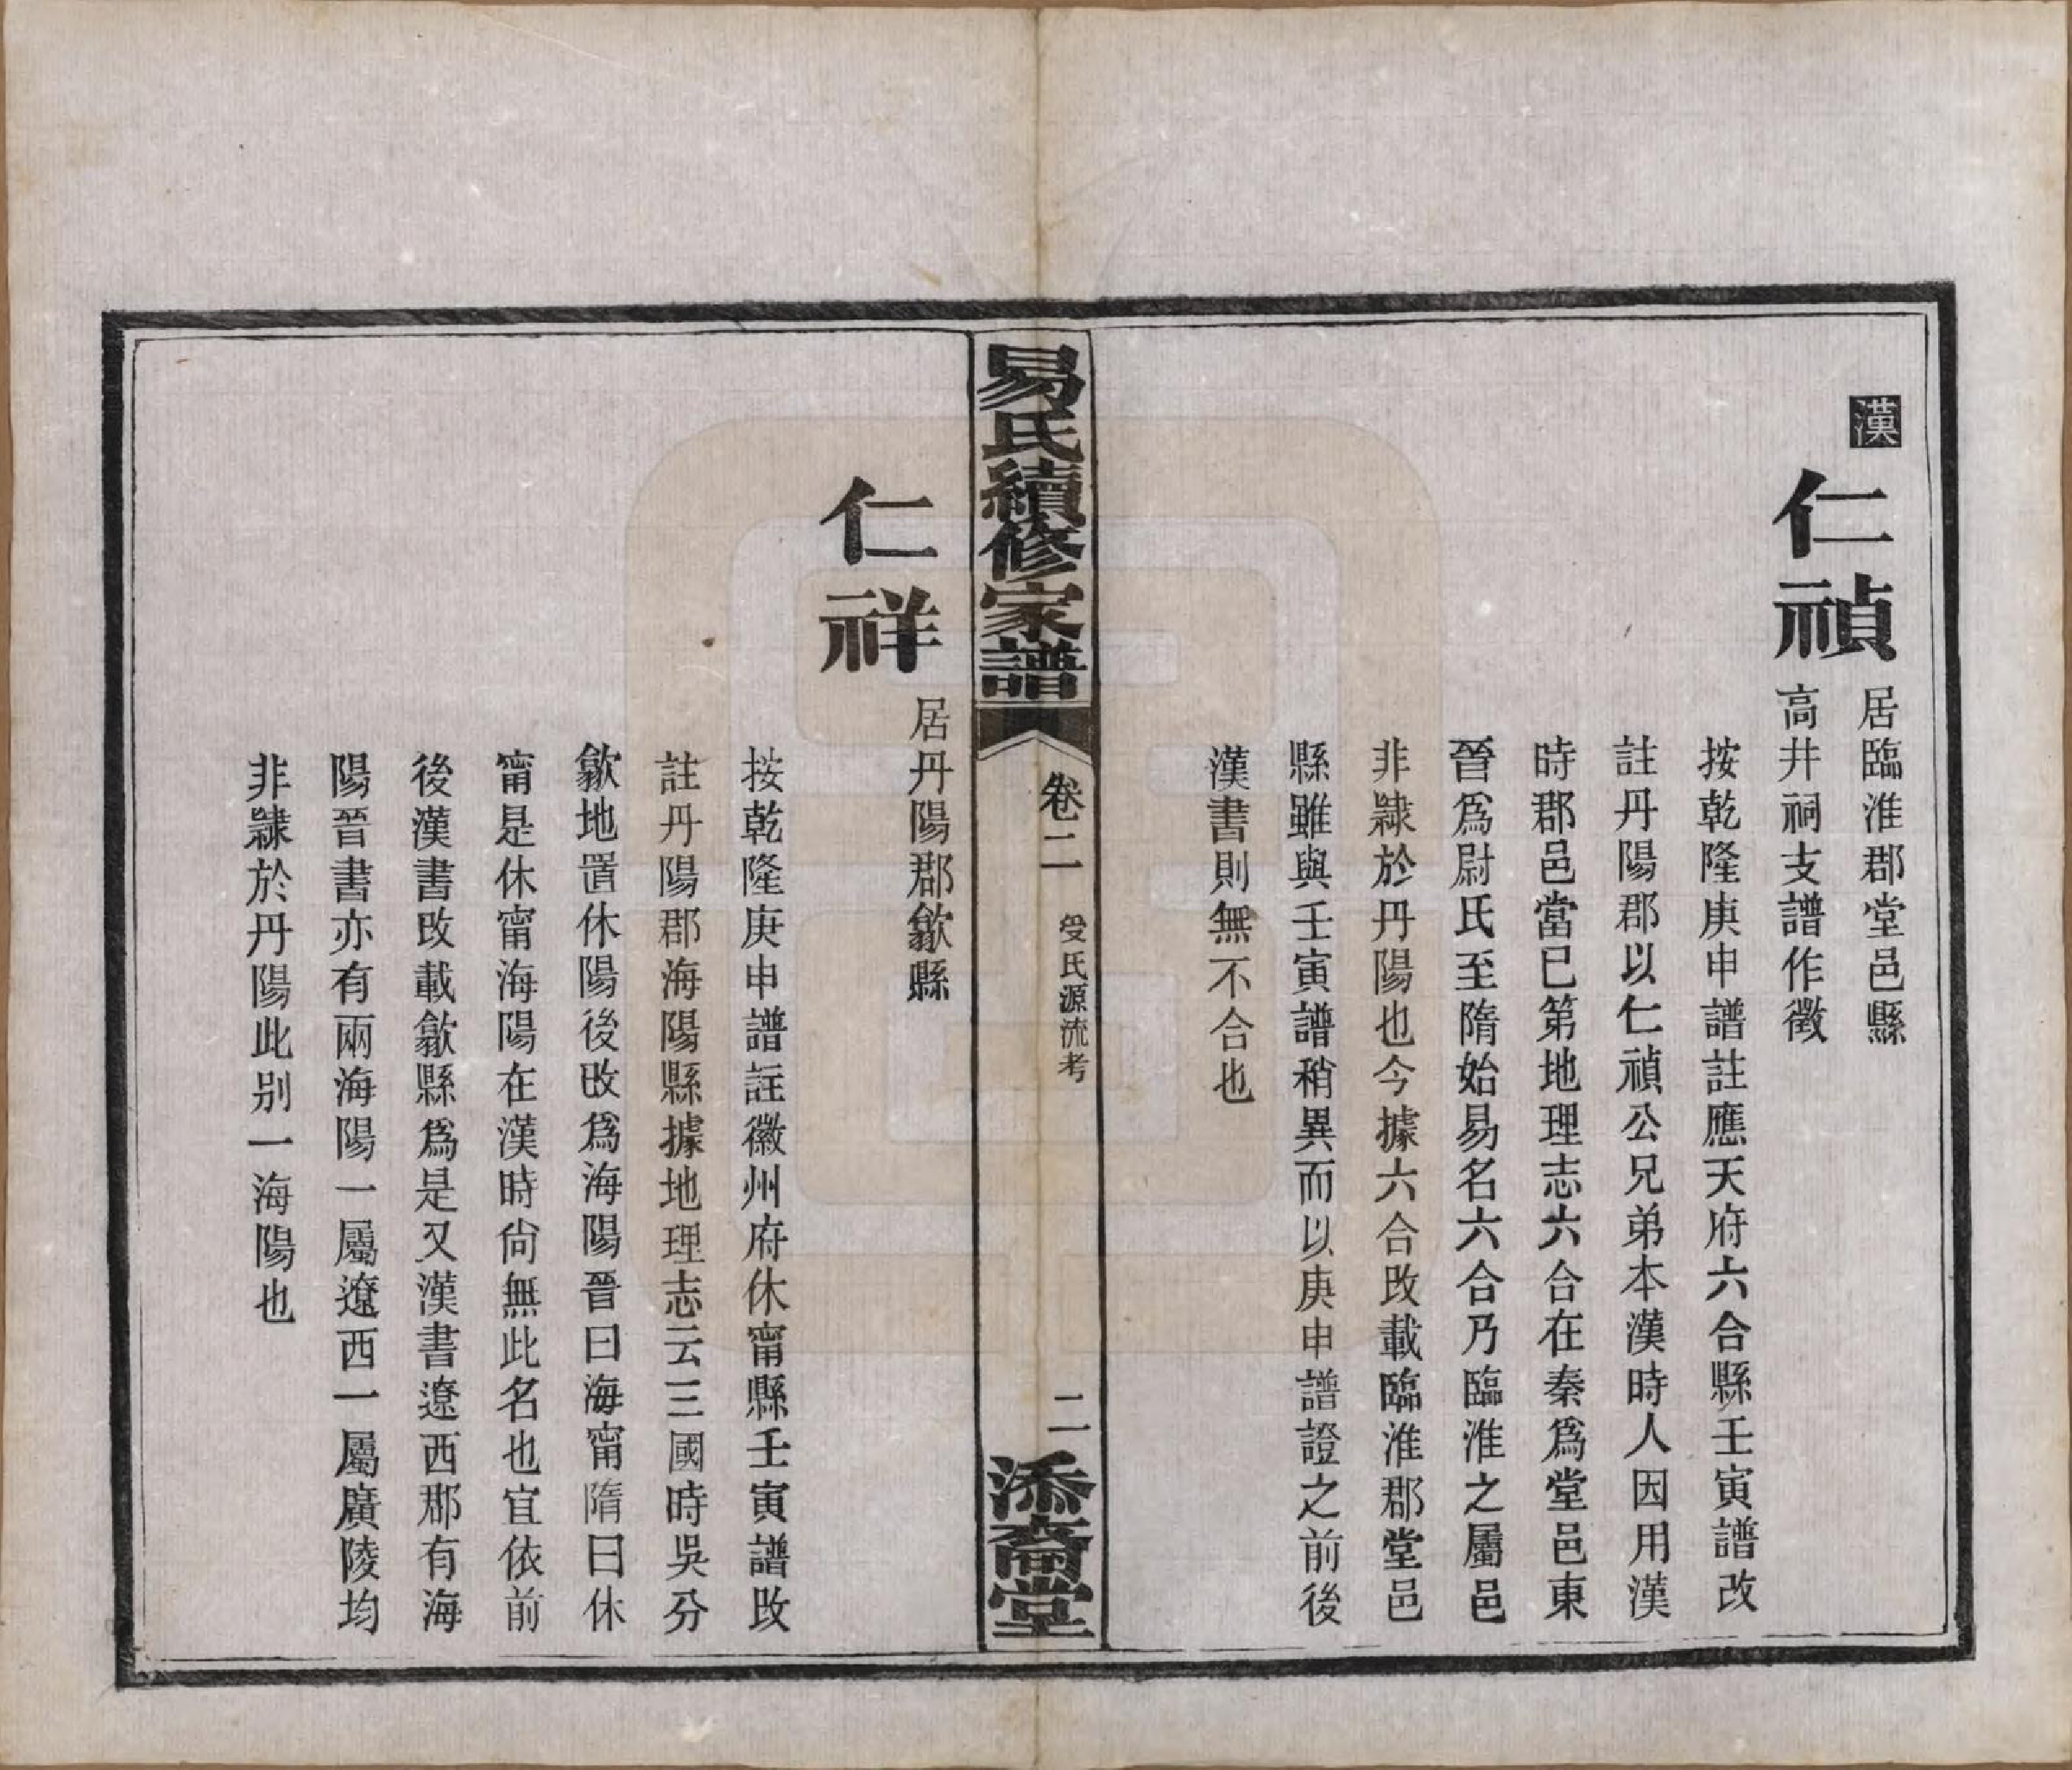 漢
仁禎
居臨淮郡堂邑縣
高井祠支譜作徵
按乾隆庚申譜註應天府六合縣壬寅譜改
註丹陽郡以仁禎公兄弟本漢時人因用漢
時郡邑當已第地理志六合在秦爲堂邑東
晉爲尉氏至隋始易名六合乃臨淮之屬邑
非隸於丹陽也今據六合改載臨淮郡堂邑
縣雖與壬寅譜稍異而以庚申譜證之前後
漢書則無不合也
易氏續修家譜
卷二
受氏源流考
二
添裔堂
仁祥
居丹陽郡歙縣
按乾隆庚申譜註徽州府休甯縣壬寅譜改
註丹陽郡海陽縣據地理志云三國時吳分
歙地置休陽後改爲海陽晉曰海甯隋曰休
甯是休甯海陽在漢時尙無此名也宜依前
後漢書改載歙縣爲是又漢書遼西郡有海
陽晉書亦有兩海陽一屬遼西一屬廣陵均
非隸於丹陽此别一海陽也